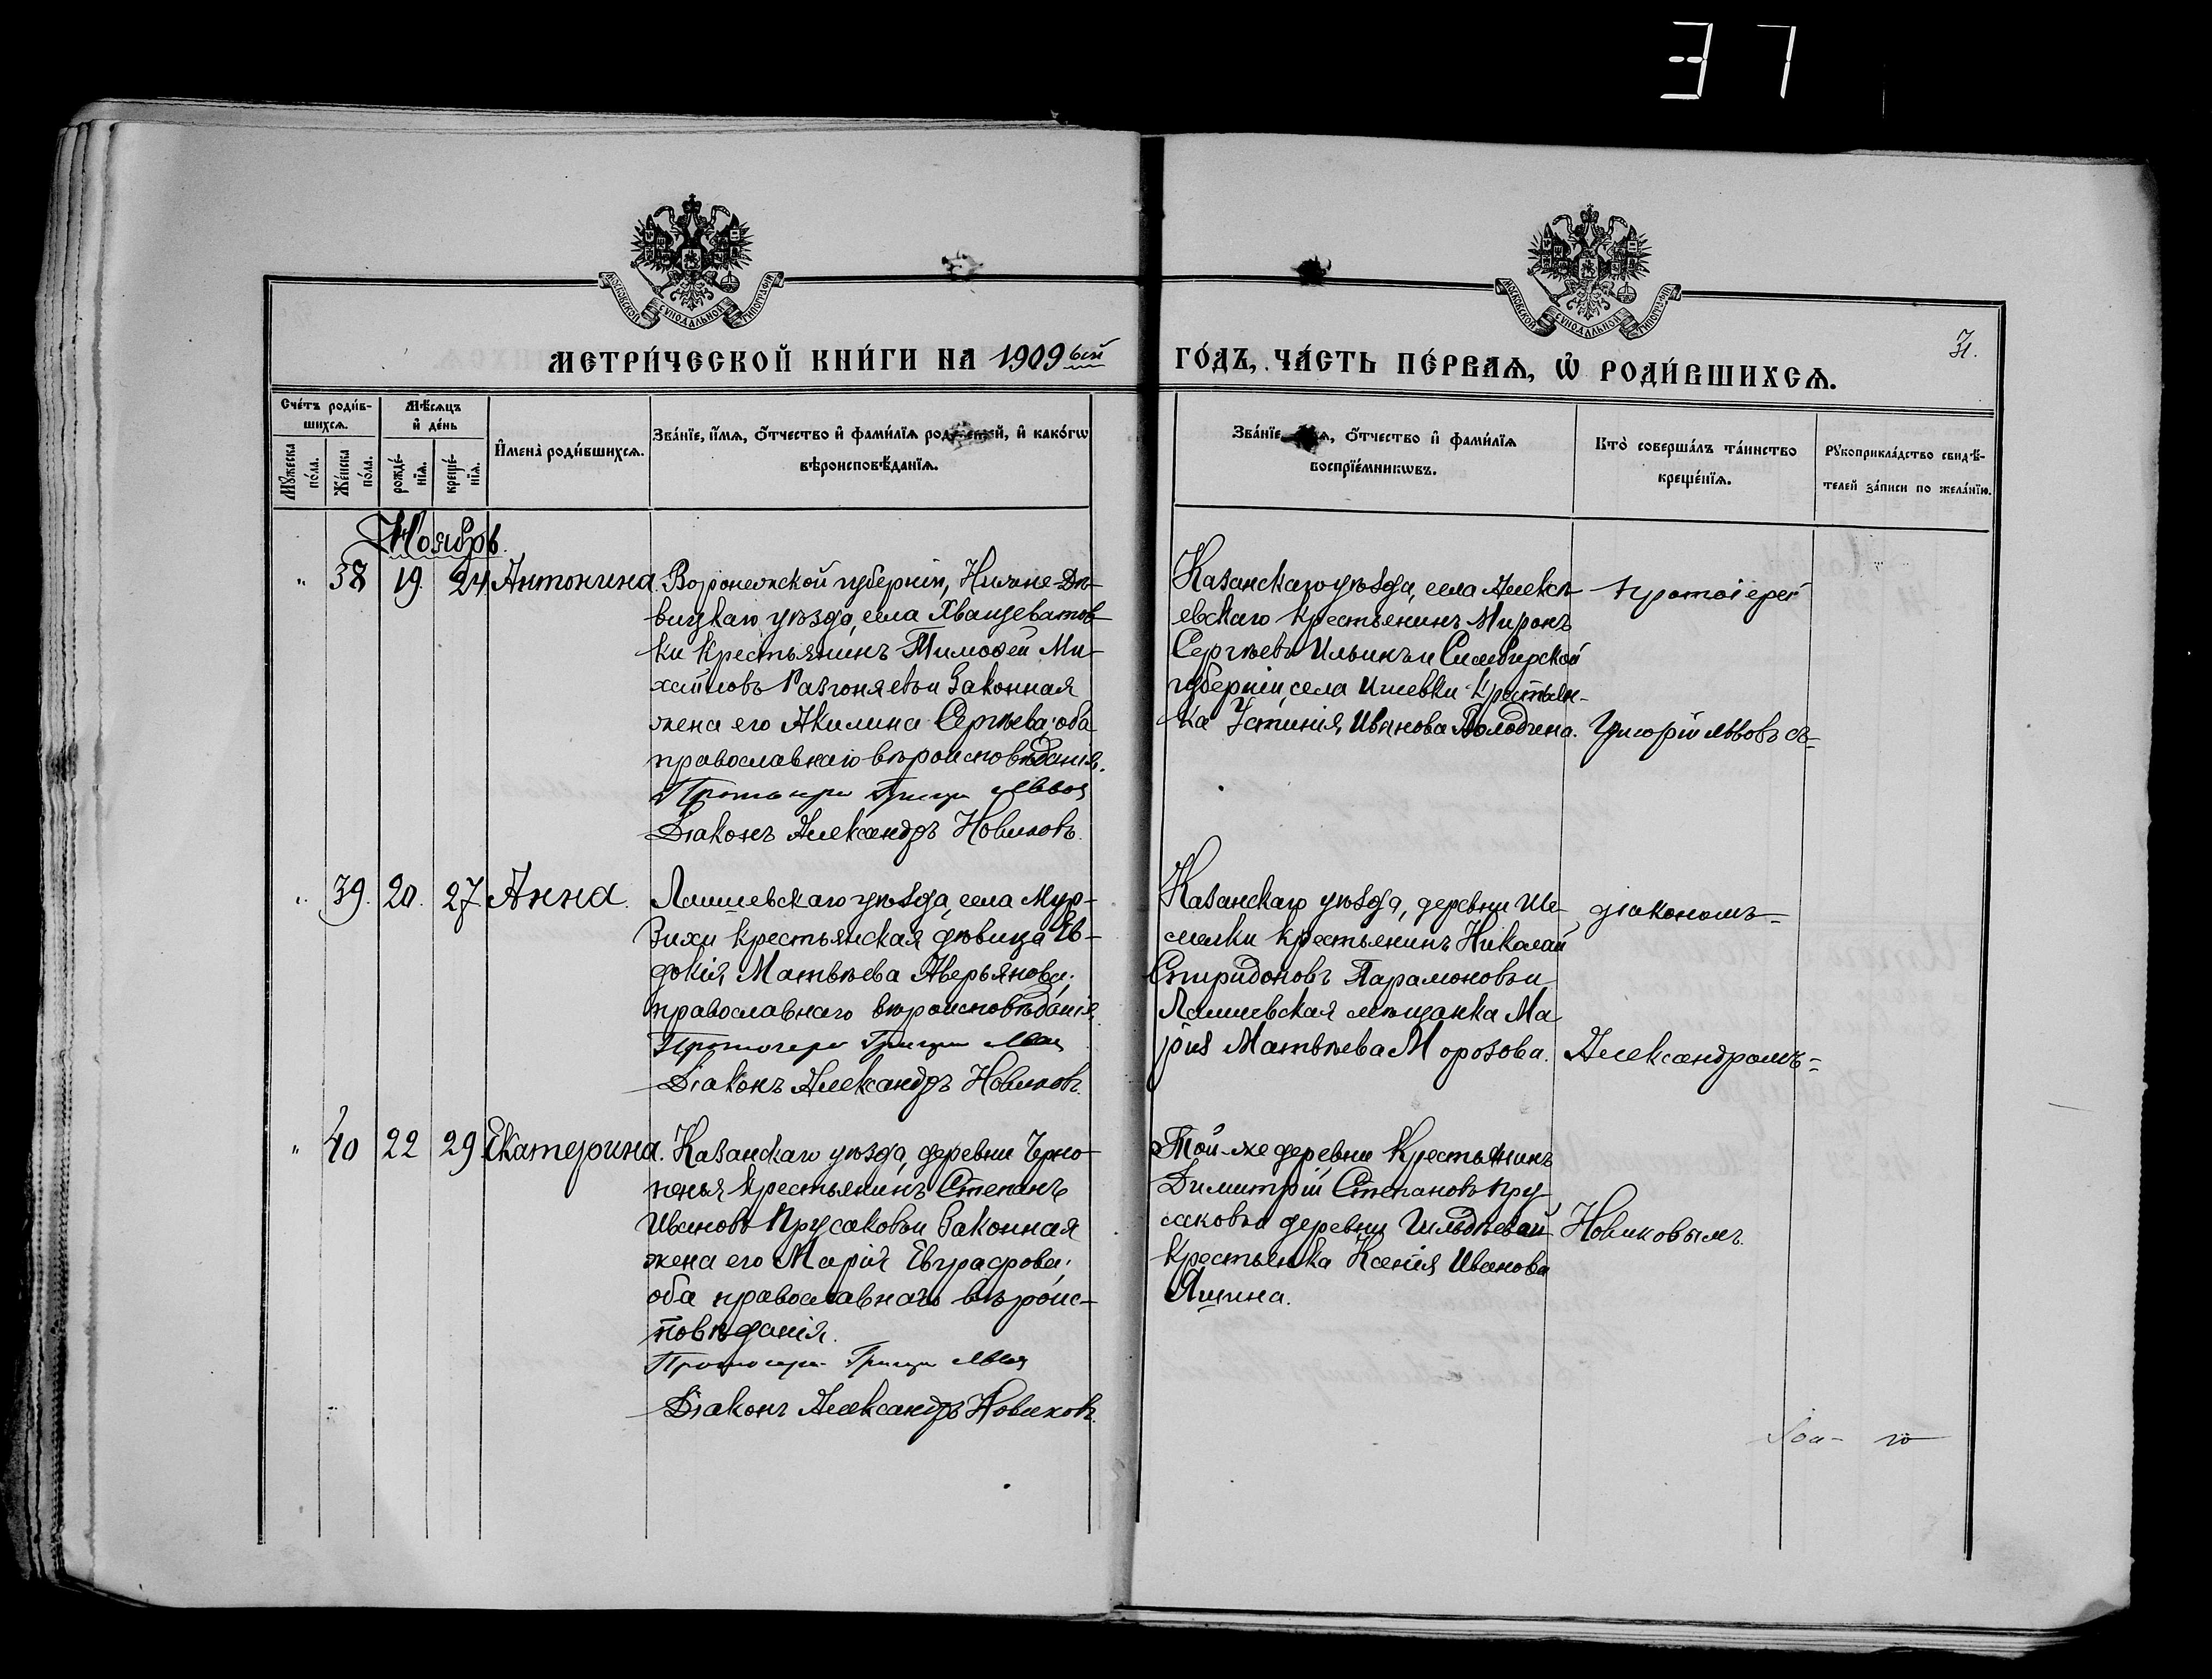 37
МОСКОВСКОЙ СѴНОДАЛЬНОЙ ТИПОГРАФІИ
МОСКОВСКОЙ СѴНОДАЛЬНОЙ ТИПОГРАФІИ
МЕТРИ́ЧЕСКОЙ КНИ́ГИ НА 1909 ый
ГО́ДЪ, ЧА́СТЬ ПЕ́РВАѦ, Ѡ҆ РОДИ́ВШИХСѦ.
31.
Сче́тъ роди́в-
шихсѧ.
Мꙋ́жеска по́ла.
Же́нска по́ла.
Мѣ́сѧцъ и҆ де́нь
рожде́-нїѧ.
креще́-нїѧ.
И҆мена̀ роди́вшихсѧ.
Зва́нїе, и҆́мѧ, ѻ҆́тчество и҆ фами́лїѧ роди́телей, и҆ како́гѡ
вѣроисповѣ́данїѧ.
Зва́нїе, и҆́мѧ, ѻ҆́тчество и҆ фами́лїѧ
воспрїе́мникѡвъ.
Кто̀ соверша́лъ та́инство
креще́нїѧ.
Рꙋкоприкла́дство свидѣ́-
телей за́писи по жела́нїю.
Ноябрь.
" 38 19. 24 Антонина.
Воронежской губерніи, Нижне-Дѣ-
вицкаго уѣзда, села Хвощеватов-
ки крестьянинъ Тимоѳей Ми-
хайловъ Разгоняевъ и законная
жена его Акилина Сергѣева; оба
православнаго вѣроисповѣданія.
Протоіерей Григорій Львовъ
Діаконъ Александръ Новиковъ.
Казанскаго уѣзда, села Алексѣ-
евскаго крестьянинъ Миронъ
Сергѣевъ Ильинъ и Симбирской
губерніи, села Ишеевки крестьян-
ка Устинія Иванова Володина.
Протоіерей
Григорій Львовъ съ
" 39. 20. 27 Анна.
Лаишевскаго уѣзда, села Мур-
зихи крестьянская дѣвица Ев-
докія Матвѣева Аверьянова;
православнаго вѣроисповѣданія.
Протоіерей Григорій Львовъ
Діаконъ Александръ Новиковъ.
Казанскаго уѣзда, деревни Ше-
мелки крестьянинъ Николай
Спиридоновъ Парамоновъ и
Лаишевская мѣщанка Ма
рія Матвѣева Морозова.
діакономъ
Александромъ
" 40 22 29 Екатерина.
Казанскаго уѣзда, деревни Черно-
пенья крестьянинъ Степанъ
Ивановъ Прусаковъ и законная
жена его Марія Евграфова;
оба православнаго вѣроис-
повѣданія.
Протоіерей Григорій Львовъ
Діаконъ Александръ Новиковъ.
Той-же деревни крестьянинъ
Димитрій Степановъ Пру-
саковъ и деревни Гильдѣевой
крестьянка Ксенія Иванова
Яшина.
Новиковымъ.